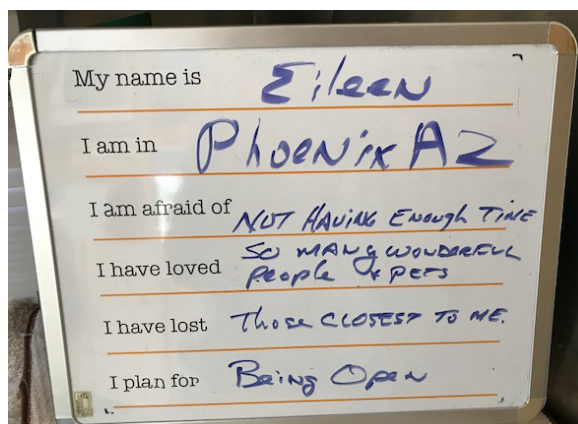 My name is Eileen
I am in Phoenix AZ
I am afraid of NOT HAVING ENOUGH TIME
I have loved SO MANY WONDERFUL
PEOPLE + PETS
I have lost Those CLOSEST TO ME.
I plan for Being Open